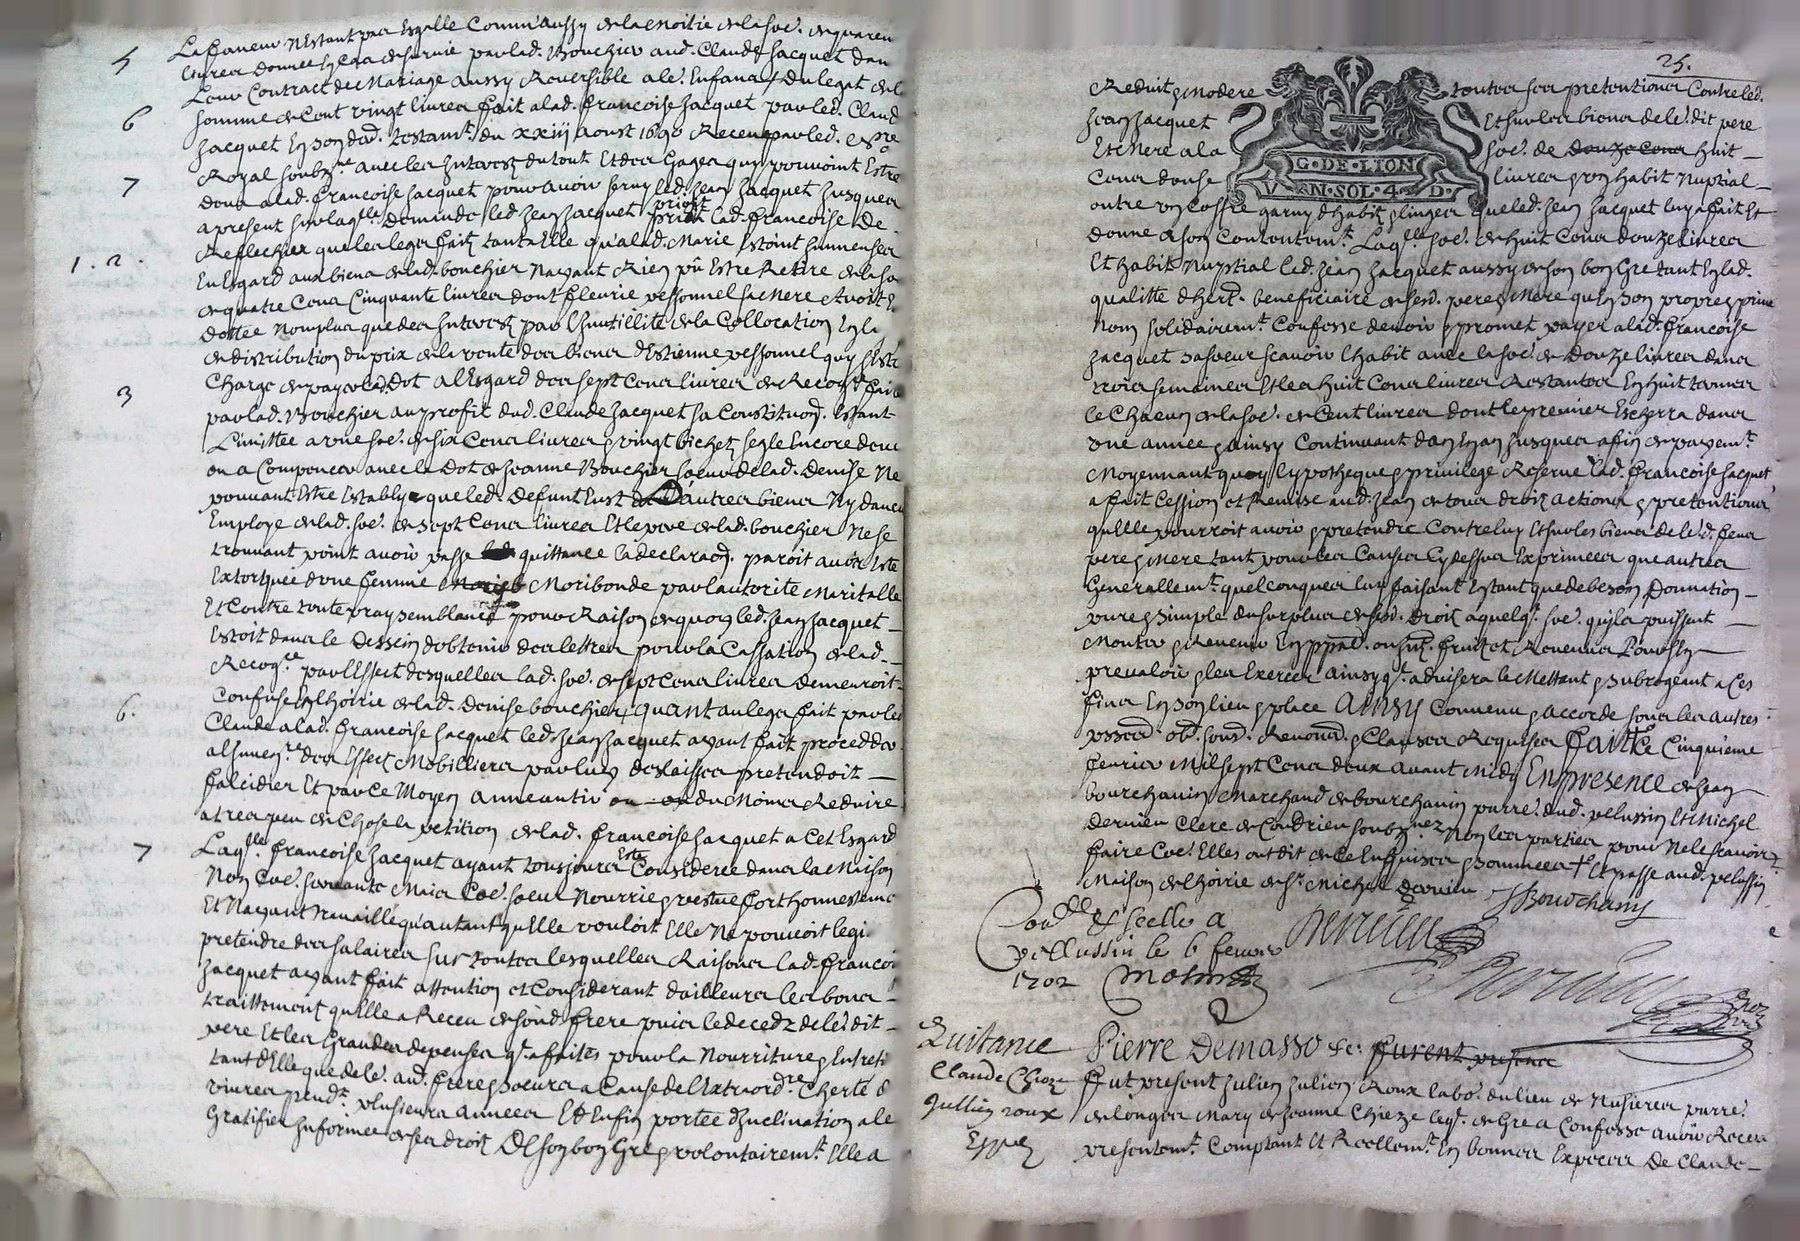 5 La faneur n'Estant pas Esgalle Comm'aussy de la moitié de la so.e de quaren
livres donnee En sa survie par lad. Bouchier aud. Claude Jacquet dan
Leur Contract de Mariage aussy Reversible a le.s Enfans / Du legat de l
6 somme de Cent vingt livres fait a lad. francoise Jacquet par led. Claud
Jacquet En son d. testam.t du xxiij aoust 1690 Receu par led. no.re
Royal soubz.ne avec les Interestz du tout Et des Gages quy pouvoint Estre
7 deus a lad. francoise Jacquet pour avoir servy led. Jean Jacquet Jusques
a present sur laq.lle Demande led. Jean Jacquet priant lad. francoise De
Reflechir que les legs faitz tant a Elle qu'a lad. Marie Estoint Immenses
1. 2. En Esgard aux biens de lad. bouchier N'ayant Rien pû Estre Retiré de la so
de quatre Cens Cinquante livres dont fleurie pessonnel sa Mere Avoit E
dottée Nonplus que des Interestz par l'Inutillité de la Collocation En la
de distribution du prix de la vente des biens d'Estienne pessonnel quy s'Est
3 Chargé de payer lad. Dot a l'Esgard des sept Cens livres de Recog.ce fait
par lad. Bouchier au proffit dud. Claude Jacquet sa Constitu.on Estant
Limittée a une so.e de six Cens livres & vingt bichetz segle Encore deue
ou a Compencer avec la Dot de Jeanne Bouchier soeur de lad. Denise Ne
pouvant Estre Estably que led. Deffunt Eust D'autres biens Ny d'aucun
Employe de lad. so.e de sept Cens livres Et le pere de lad. bouchier Ne se
trouvant point avoir passé quittance la declara.on paroit avoir Esté
Extorquée d'une femme Moribonde par l'autorité Maritalle
Et Contre toute vraysemblance pour Raison de quoy led. Jean Jacquet
Estoit dans le Dessein d'obtenir des lettres pour la Cassation de lad.
Recog.ce par l'Effect desquelles lad. so.e de sept Cens livres Demeuroit
6. Confuse En l'hoirie de lad. Denise bouchier, QUANT au legs fait par led
Claude a lad. francoise Jacquet led. Jean Jacquet ayant fait proceder
a l'Inven.re des Effectz Mobilliers par luy deslaissez pretendoit
falcidier Et par Ce Moyen anneantir ou du Moins Reduire
a tres peu de Chose la petition de lad. francoise Jacquet a Cet Esgard
7 Laq.lle francoise Jacquet ayant tousjours Esté Consideree dans la Maison
Non Co.e servante Mais Co.e soeur Nourrie & vestue fort honnestement
Et N'ayant travaillé qu'autant qu'Elle vouloit Elle Ne pouvoit legi
pretendre des salaires sur toutes lesquelles Raisons lad. francoi
Jacquet ayant fait attention et Considerant d'ailleurs les bons
traittement qu'elle a Receu de sond. frere puis le decedz de le.s dit
pere Et les Grandes depenses q.'il a faites pour la Nourriture & Entreti
tant d'Elle que de le.s aud. freres & soeurs a Cause de l'Extraord.re Cherté d
vivres pend.t plusieurs annees Et Enfin portee d'Inclination a le
Gratifier Informee de ses droitz DE son bon Gré & volontairem.t Elle a
25.
Reduit & Modere toutes ses pretentions Contre led.
Jean Jacquet Et sur les biens de le.s dit pere
Et Mere a la so.e de douze Cens huit
Cens douse livres & son habit Nuptial
G·DE·LION
V N·SOL·4·D·
outre un coffre garny d'habitz & linges que led. Jean Jacquet luy a fait Et
donné a son Contentem.t Laq.lle so.e de huit Cens douze livres
Et habit Nuptial led. Jean Jacquet aussy de son bon Gré tant En lad.
qualitté d'hert. beneficiaire de sesd. pere & Mere qu'En son propre & privé
Nom solidairem.t Confesse devoir & promet payer a lad. francoise
Jacquet sa soeur scavoir l'habit avec la so.e de Douze livres dans
trois semaines Et les huit Cens livres Restantes En huit termes
le Chacun de la so.e de Cent livres dont le premier Escherra dans
une année & ainsy Continuant d'an En an Jusques a fin de payem.t
Moyennant quoy l'ypotheque & privilege Reservé lad. francoise Jacquet
a fait Cession et Remise aud. Jean de tous droitz actions & pretentions
qu'Elle pourroit avoir & pretendre Contre luy Et sur les biens de le.s d. feus
pere & Mere tant pour les Causes Cy dessus Exprimees que autres
Generallem.t quelconques luy faisant En tant que de besoin Donnation
pure & simple du surplus de sesd. Droitz a quelq.e so.e qu'ilz puissent
Monter & Revenir En pp.al ou Int. fruitz et Revenus Pour s'En
prevaloir & les Exercer ainsy q.'il advisera le Mettant & subrogeant a Ces
fins En son lieu & place AINSY Convenu & accordé sous les autres
pssess. ob. sous. Renond. & Clauses Requises FAIT Ce Cinquieme
fevrier Mil sept Cens deux avant Midy EN PRESENCE de Jean
bourchanin Marchand de bourchanin parre. dud. pelussin Et Michel
dervieu Clerc de Condrieu soubz.nez Non les parties pour Ne le scavoir
faire Co.e Elles ont dit de Ce Enquises & sommees + Et passé aud. pelussin
Maison de l'hoirie de S.r Michel dervieu
J Bourchany
Dervieu
Con.lle & scellé a
pellussin le 6 fevrier
1702
Quitance
Claude Chieze
Jullien roux
Expe
Pierre Demasso &c: furent presence
fut present Julien Julien Roux labo.r du lieu de Nusieres parre.
de longes Mary de Jeanne Chieze leq.l de Gré a Confessé avoir Receu
presentem.t Comptant Et Reellem.t En bonnes Especes De Claude